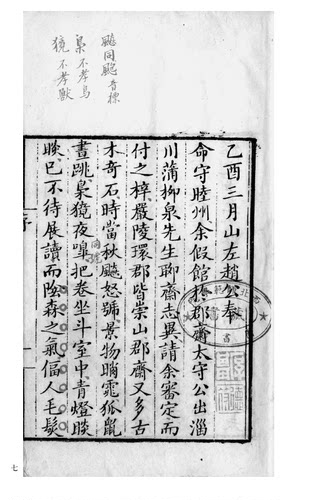 飈同飆音標
梟不孝鳥
獍不孝獸
乙酉三月山左趙公奉
命守睦州余假館於郡齋太守公出淄
川蒲柳泉先生聊齋志異請余審定而
付之梓嚴陵環郡皆崇山郡齋又多古
木奇石時當秋飈怒號景物睄窱狐鼠
晝跳梟獍夜嘷把卷坐斗室中青燈睒
睒已不待展讀而陰森之氣偪人毛髮
序
七